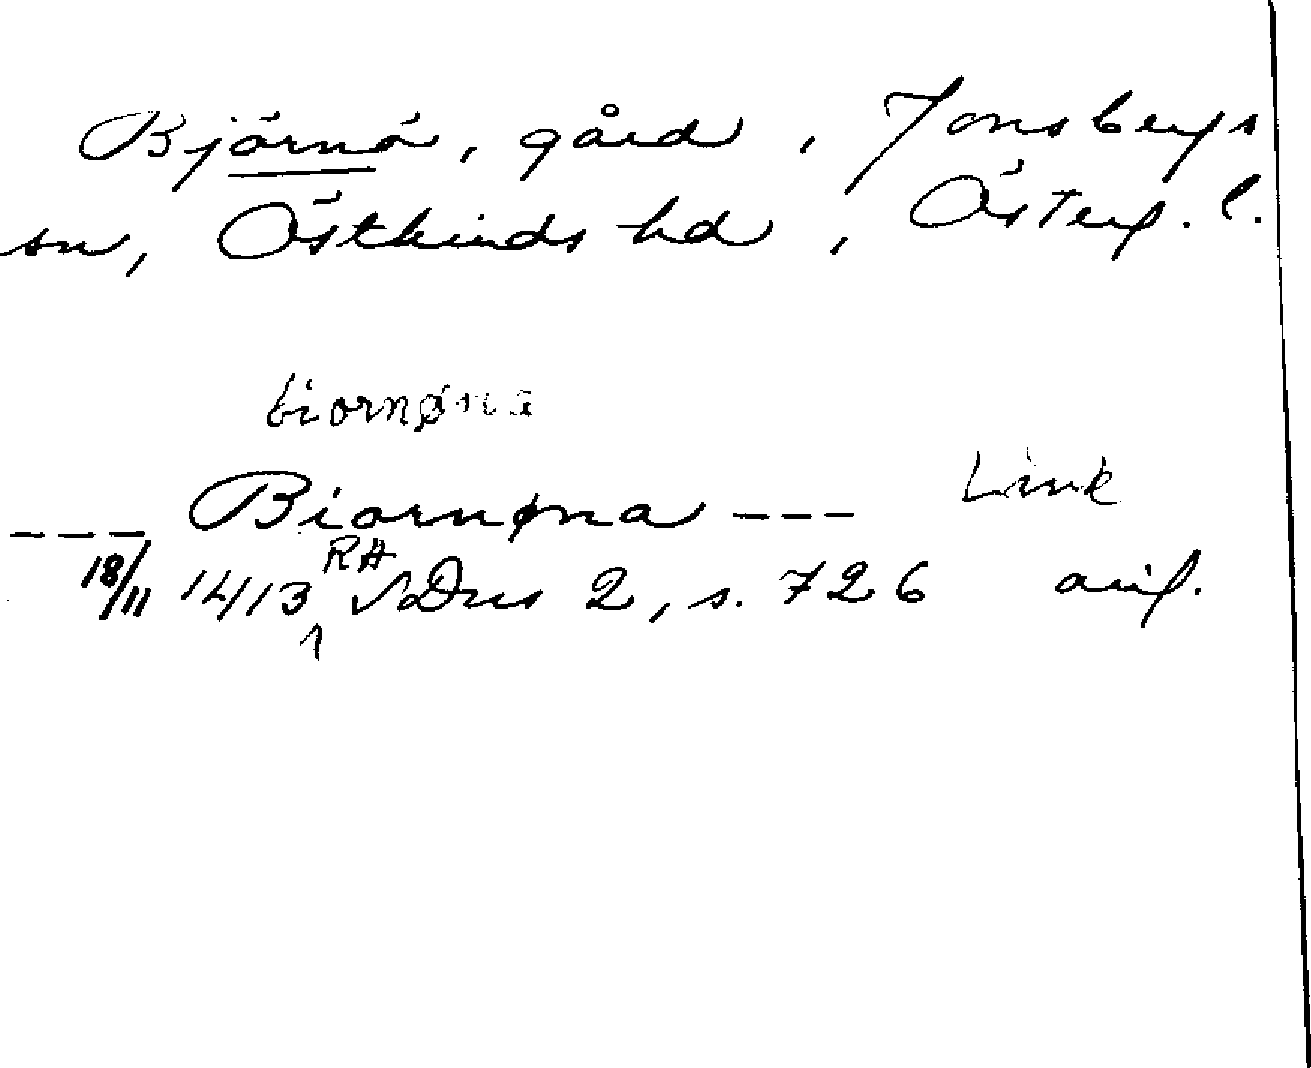 Björnö, gård, Jonsbergs
sn, Östkinds hd, Österg. l.
biornøna
--- Biornøna --- Link
18/11 1413 RA SDns 2, s. 726 avif.